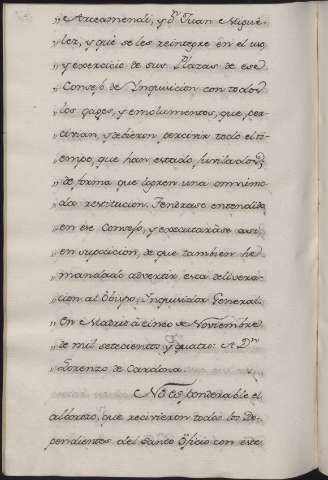 „ Arzeamendi, y Dn. Juan Migue-
„ lez, y que se les reintegre en el uso
„ y exercicio de sus Plazas de ese
„ Consejo de Ynquisicion con todos
„ los gages, y emolumentos, que per-
„ civian, y debieron percivir todo el ti-
„ empo, que han estado junilados;
„ de forma que logren una omnimo-
„ da restitucion. Tendrase entendido
„ en ese Consejo, y executarase asi,
„ en suposicion, de que tambien he
„ mandado advertir esta delivera-
„ cion al Obispo, Ynquisidor General.
„ En Madrid à cinco de Noviembre
„ de mil setecientos y quatro: A Dn.
„ Lorenzo de Cardona.
No es ponderable el
alborozo, que recivieron todos los De-
pendientes del Santo Oficio con este